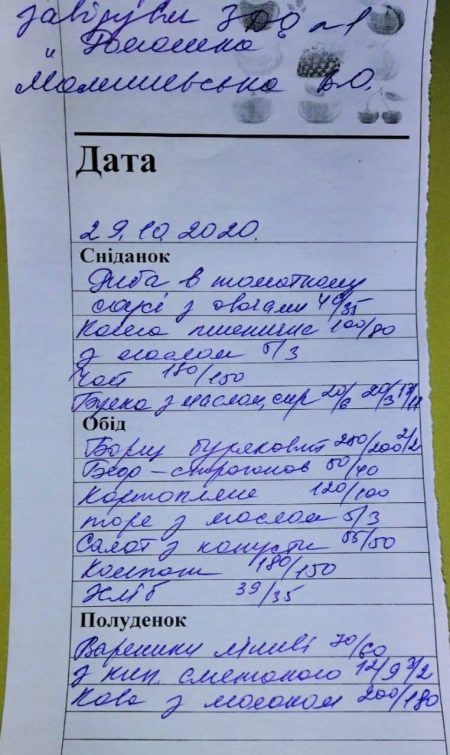 завідувач ЗДО №1
"Ромашка
Малишевська В.О.
Дата
29.10.2020.
Сніданок
Риба в томатному
соусі з овочами 40/35
Каша пшенична 100/80
з маслом 5/3
Чай 180/150
Булка з маслом, сир 20/6 20/3 17/11
Обід
Борщ буряковий 250/200 2/2
Беф-строганов 50/40
Картопляне 120/100
пюре з маслом 5/3
Салат з капусти 55/50
Компот 180/150
Хліб 39/35
Полуденок
Вареники ліниві 70/60
з кип. сметаною 12/9 3/2
Кава з молоком 200/180